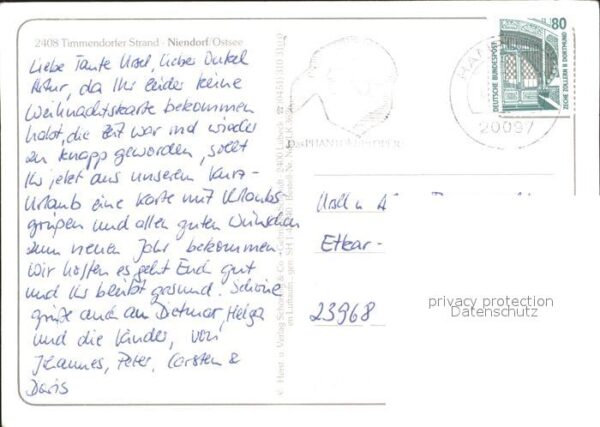 2408 Timmendorfer Strand - Niendorf/Ostsee
Liebe Tante Ursel, lieber Onkel
Artur, da Ihr leider keine
Weihnachtskarte bekommen
habt, die Zeit war mal wieder
zu knapp geworden, sollt
Ihr jetzt aus unserem Kurz-
Urlaub eine Karte mit Urlaubs-
grüßen und allen guten Wünschen
zum neuen Jahr bekommen.
Wir hoffen es geht Euch gut
und Ihr bleibt gesund. Schöne
Grüße auch an Dietmar, Helga
und die Kinder, von
Johannes, Peter, Carsten &
Doris
80
DEUTSCHE BUNDESPOST
ZECHE ZOLLERN II DORTMUND
20097
Etkar-
23968
privacy protection
Datenschutz